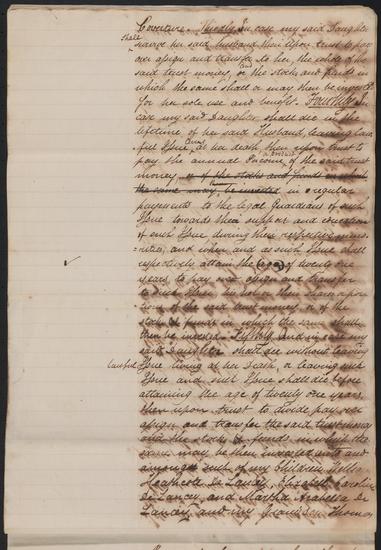 Coverture. Thirdly In case my said Daughter
shall
survive her said husband then Upon trust to pay
over assign and transfer to her, the whole of the
said trust money, or the stocks and funds in
which the same shall or may then be invested
for her sole use and benefit. Fourthly In
case my said Daughter shall die in the
lifetime of her said Husband, leaving law
ful Issue at her death then upon trust to
pay the annual Income of the said trust
money or of the stocks and funds in which
the same may be invested in regular
payments to the legal Guardians of such
Issue towards their support and education
of such Issue during their respective mino
=rities, and when and as such Issue shall
respectively attain the age of twenty one
years, to pay over assign and transfer
to such Issue his her or their share
of the said trust money or of the
stock & funds in which the same shall
then be invested Fifthly And in case my
said Daughter shall die without leaving
lawful Issue living at her death, or leaving such
Issue and such Issue shall die before
attaining the age of twenty one years,
then upon trust to divide pay over
assign and transfer the said trust money
and the stock & funds in which the
same may be then invested unto and
amongst such of my children
Heathcote De Lancey, Elizabeth Caroline
De Lancey, and Martha Arabella De
Lancey, and my Grandson Thomas